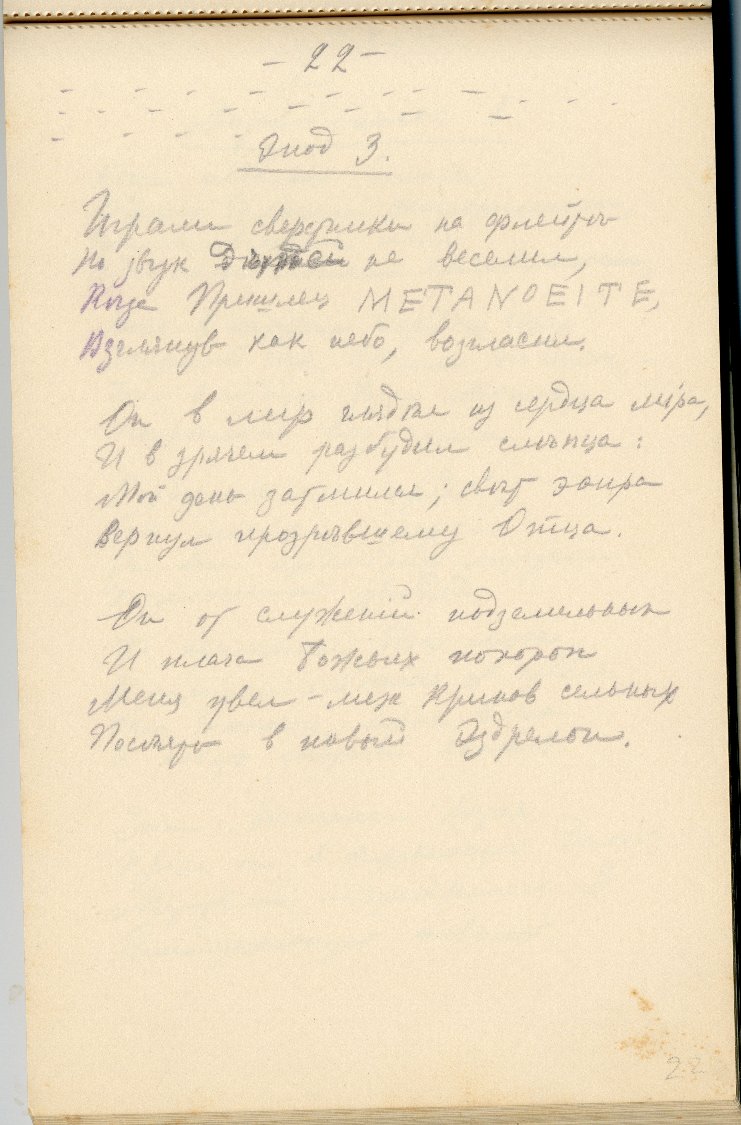 - 22 -
Эпод 3.
Играли сверстники на флейтѣ
Но звук не веселил,
Когда Пришлец METANOEITE,
Взглянув как небо, возгласил.
Он в мир глядѣл из сердца міра,
И в зрячем разбудил слѣпца:
Мой день затмился; свѣт эѳира
Вернул прозрѣвшему Отца.
Он от служеній подземельных
И плача Божьих похорон
Меня увел – меж кринов сельных
Посѣять в новый Эздрелон.
22